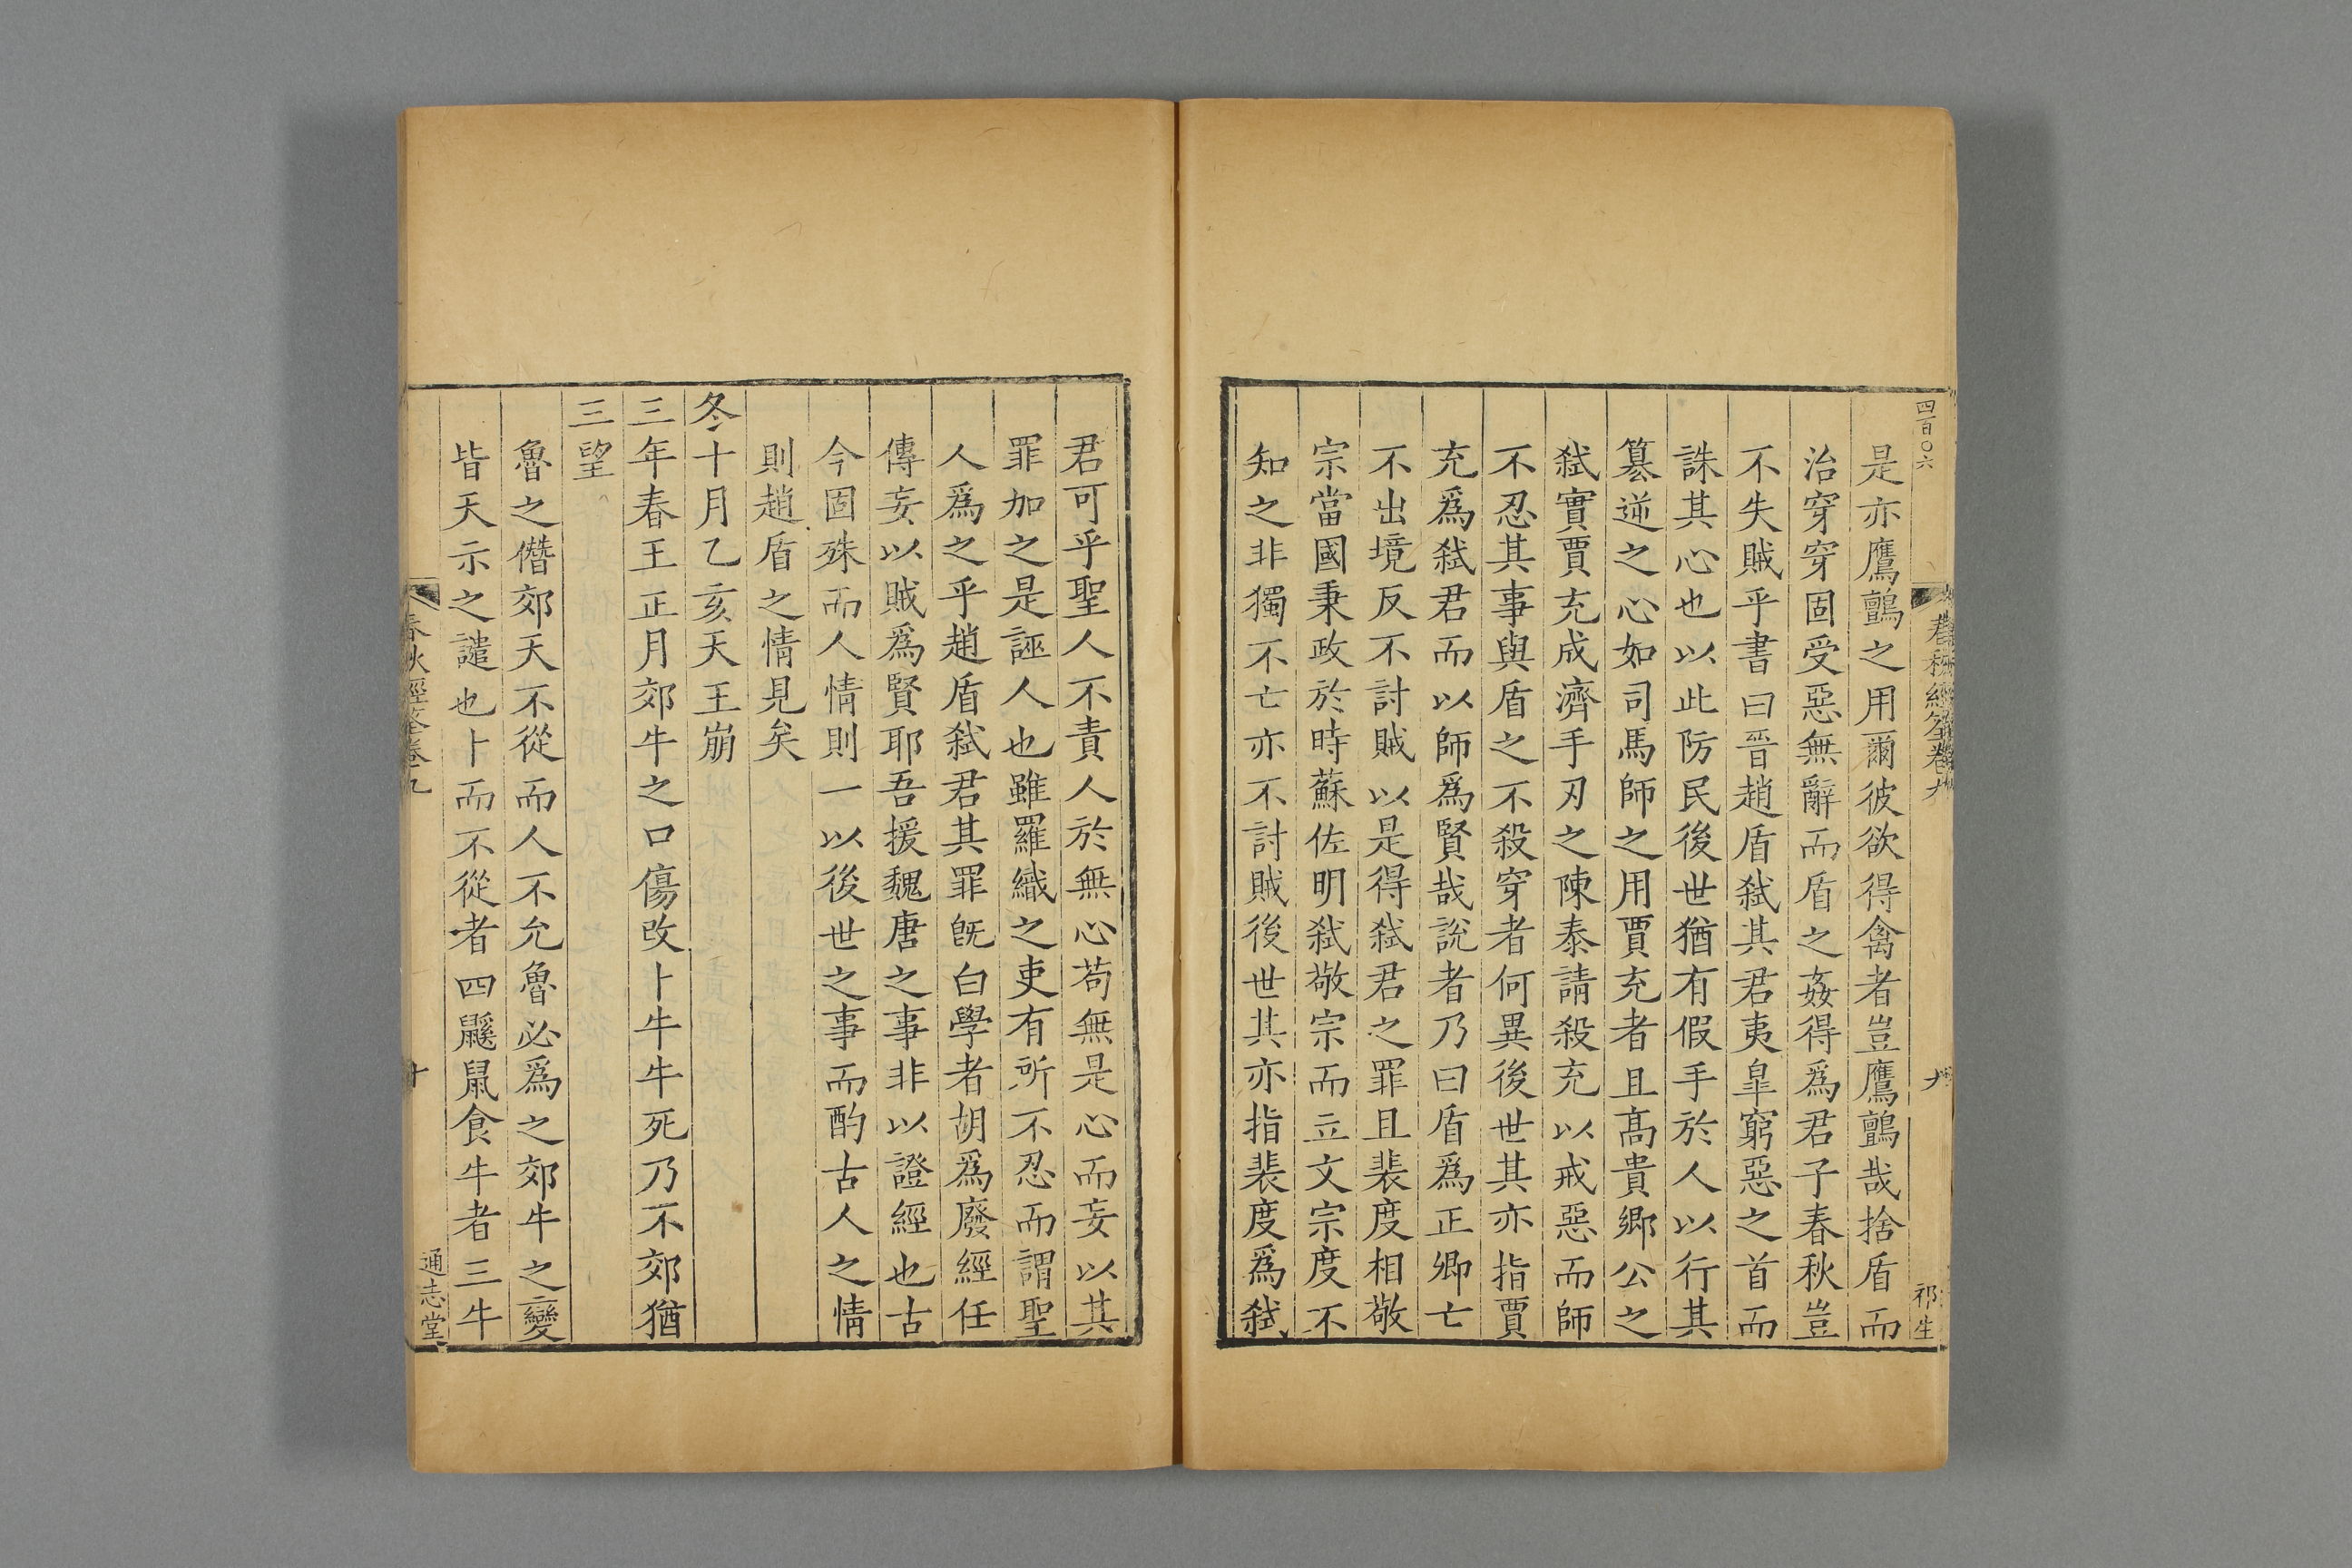 四百〇六
春秋經筌卷九
九
祁生
是亦鷹鸇之用爾彼欲得禽者豈鷹鸇哉捨盾而
治穿穿固受惡無辭而盾之姦得爲君子春秋豈
不失賊乎書曰晉趙盾弑其君夷臯窮惡之首而
誅其心也以此防民後世猶有假手於人以行其
篡逆之心如司馬師之用賈充者且髙貴鄉公之
弑實賈充成濟手刃之陳泰請殺充以戒惡而師
不忍其事與盾之不殺穿者何異後世其亦指賈
充爲弑君而以師爲賢哉說者乃曰盾爲正卿亡
不出境反不討賊以是得弑君之罪且裴度相敬
宗當國秉政於時蘇佐明弑敬宗而立文宗度不
知之非獨不亡亦不討賊後世其亦指裴度爲弑
君可乎聖人不責人於無心苟無是心而妄以其
罪加之是誣人也雖羅織之吏有所不忍而謂聖
人爲之乎趙盾弑君其罪旣白學者胡爲廢經任
傳妄以賊爲賢耶吾援魏唐之事非以證經也古
今固殊而人情則一以後世之事而酌古人之情
則趙盾之情見矣
冬十月乙亥天王崩
三年春王正月郊牛之口傷改卜牛牛死乃不郊猶
三望
魯之僭郊天不從而人不允魯必爲之郊牛之變
皆天示之譴也卜而不從者四鼷鼠食牛者三牛
春秋經筌卷九
十
通志堂